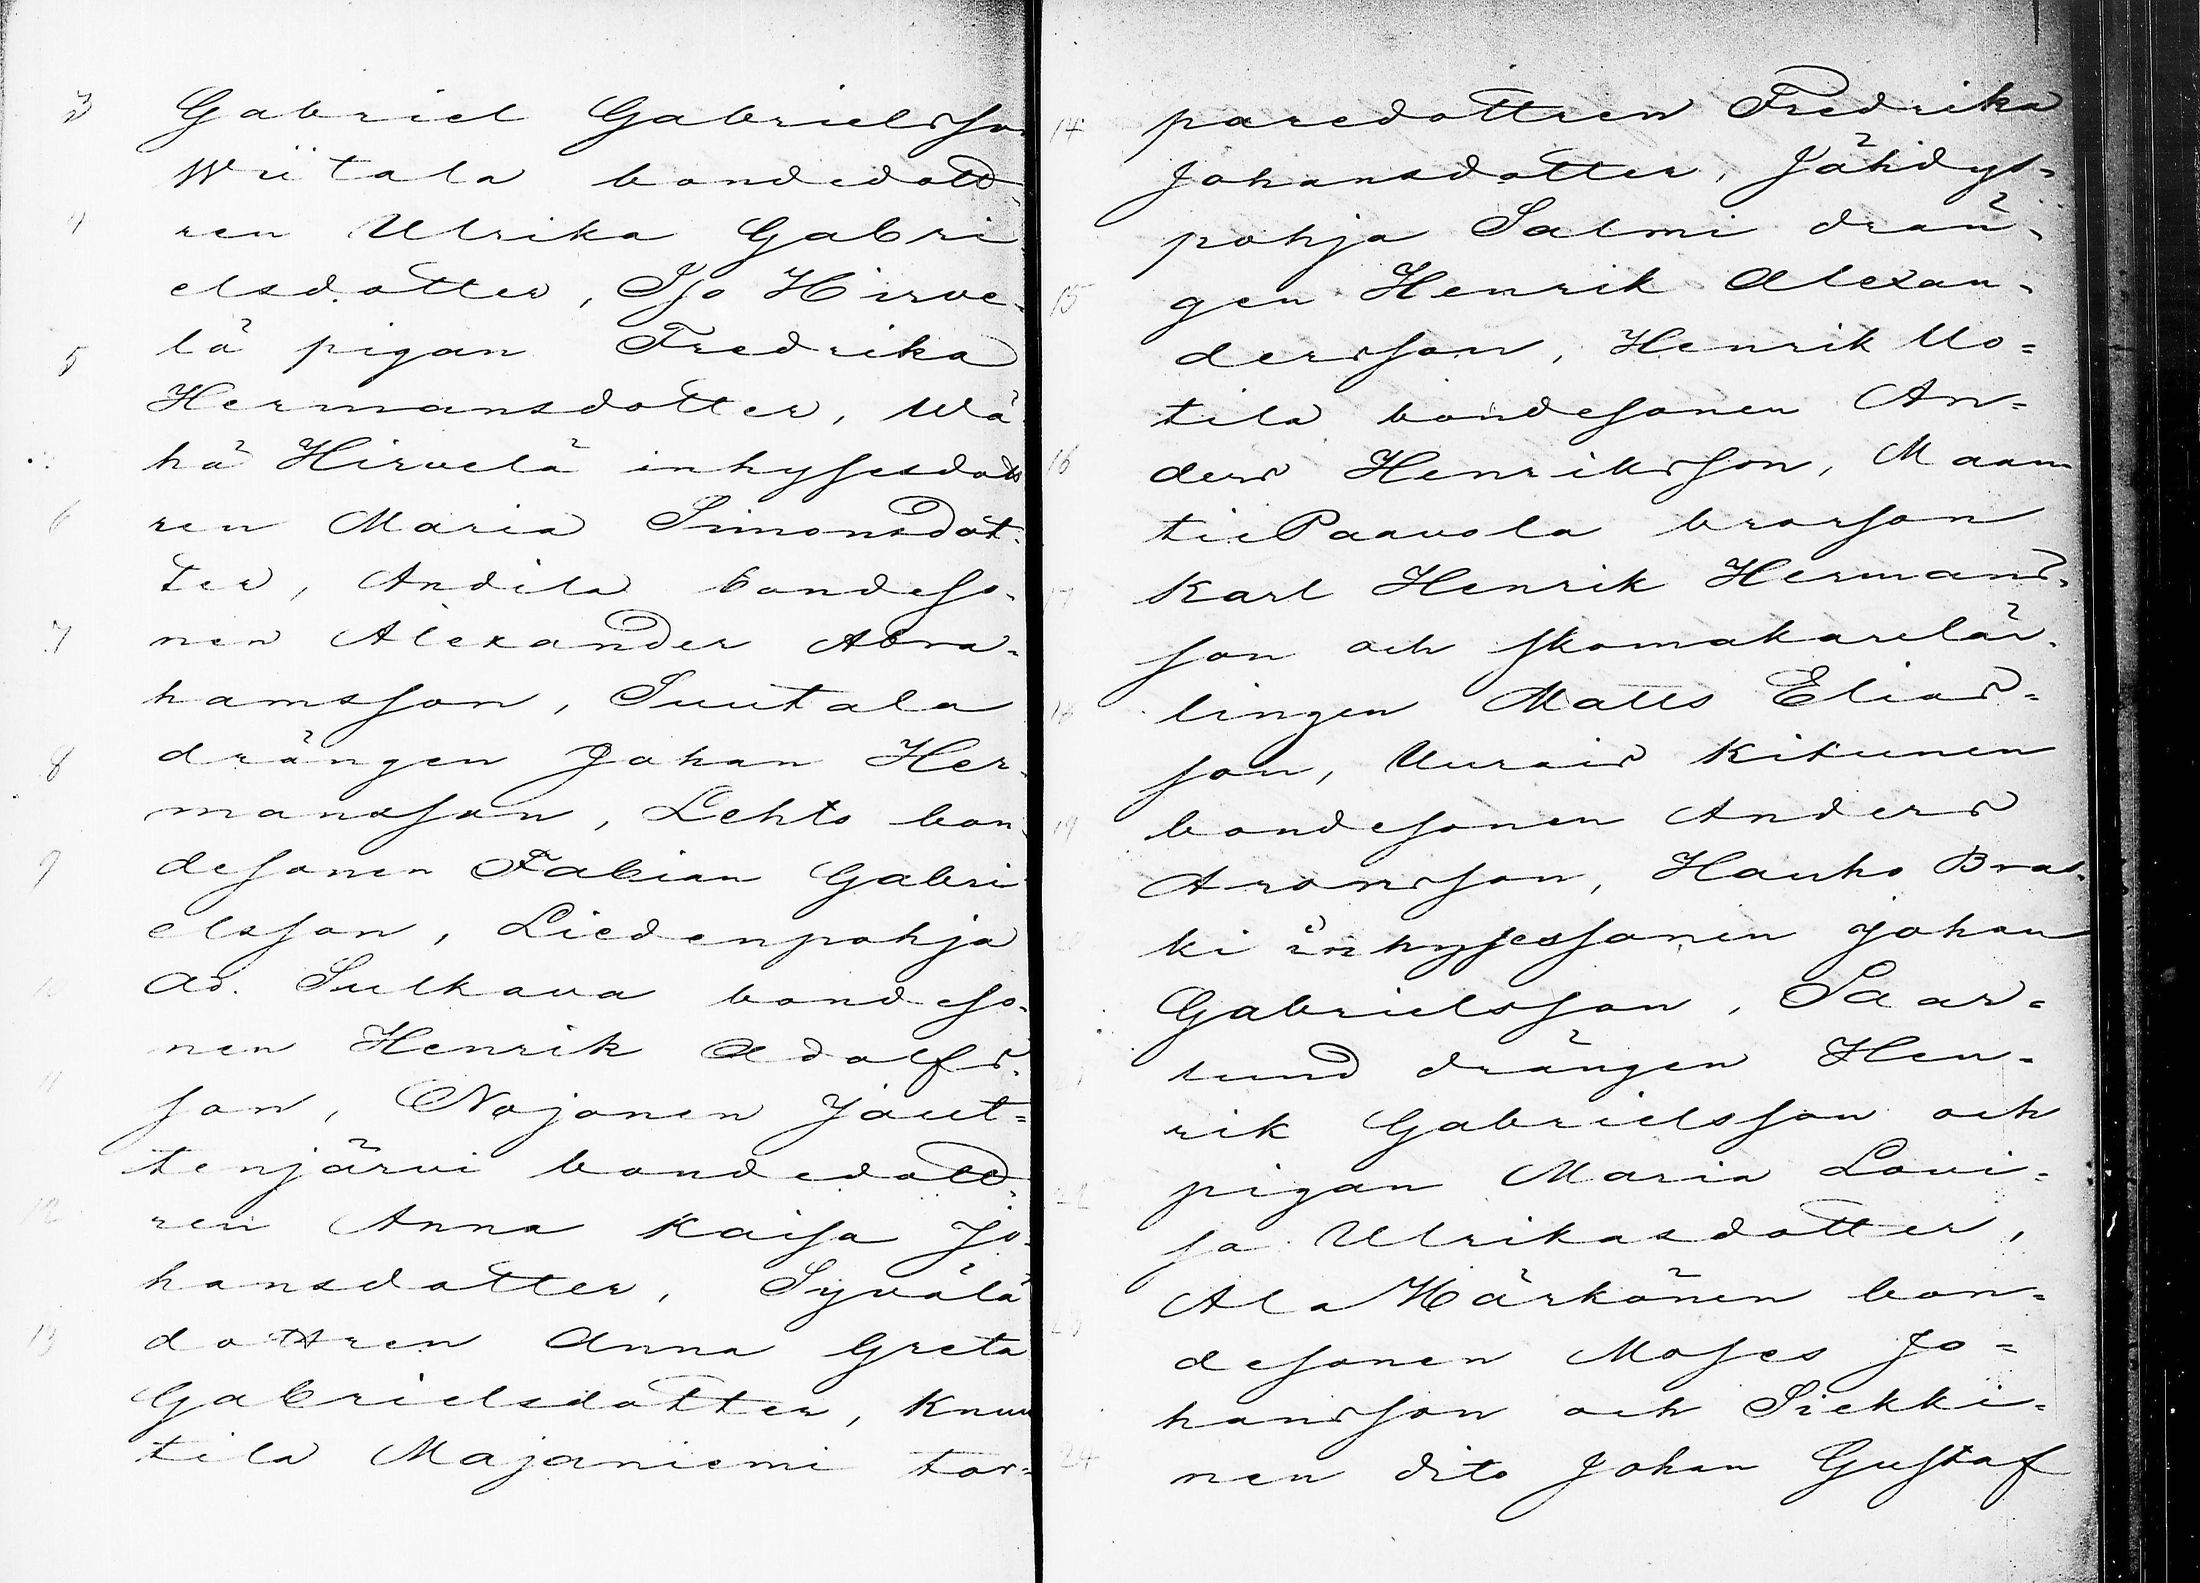 3 Gabriel Gabrielsson
Wiitala bondedott
4 ren Ulrika Gabri
elsdotter, Iso Hirve-
5 lä pigan Fredrika
Hermansdotter, Wä
hä Hirvelä inhysesdott
6 ren Maria Simonsdot-
ter, Andila bondeso-
7 nen Alexander Abra-
hamsson, Suutala
8 drängen Johan Her-
mansson, Lehto bon-
9 desonen Fabian Gabri
elsson, Liedenpohja
10 Ad. Sulkava bondeso-
nen Henrik Adolfs-
11 son, Nojonen Jout=
tenjärvi bondedott-
12 ren Anna Kaisa Jo-
hansdotter, Syvälä
13 dottren Anna Greta
Gabrielsdotter, Knuu
tila Majaniemi tor-
14 paredottren Fredrika
Johansdotter, Jähdys-
pohja Salmi drän-
15 gen Henrik Alexan-
dersson, Henrik Uo=
tila bondesonen An=
16 ders Henriksson, Maan
tie Paavola brorson
17 Karl Henrik Hermans-
son och skomakarelär-
18 lingen Matts Elias-
son, Uurais Kikunen
19 bondesonen Anders
Aronsson, Hauho Bras-
20 ki inhysessonen Johan
Gabrielsson, Saar=
21 lund drängen Hen-
rik Gabrielsson och
22 pigan Maria Lovi=
sa Ulrikasdotter,
Ala Härkönen bon=
23 desonen Moses Jo=
hansson och Siekki-
24 nen dito Johan Gustaf